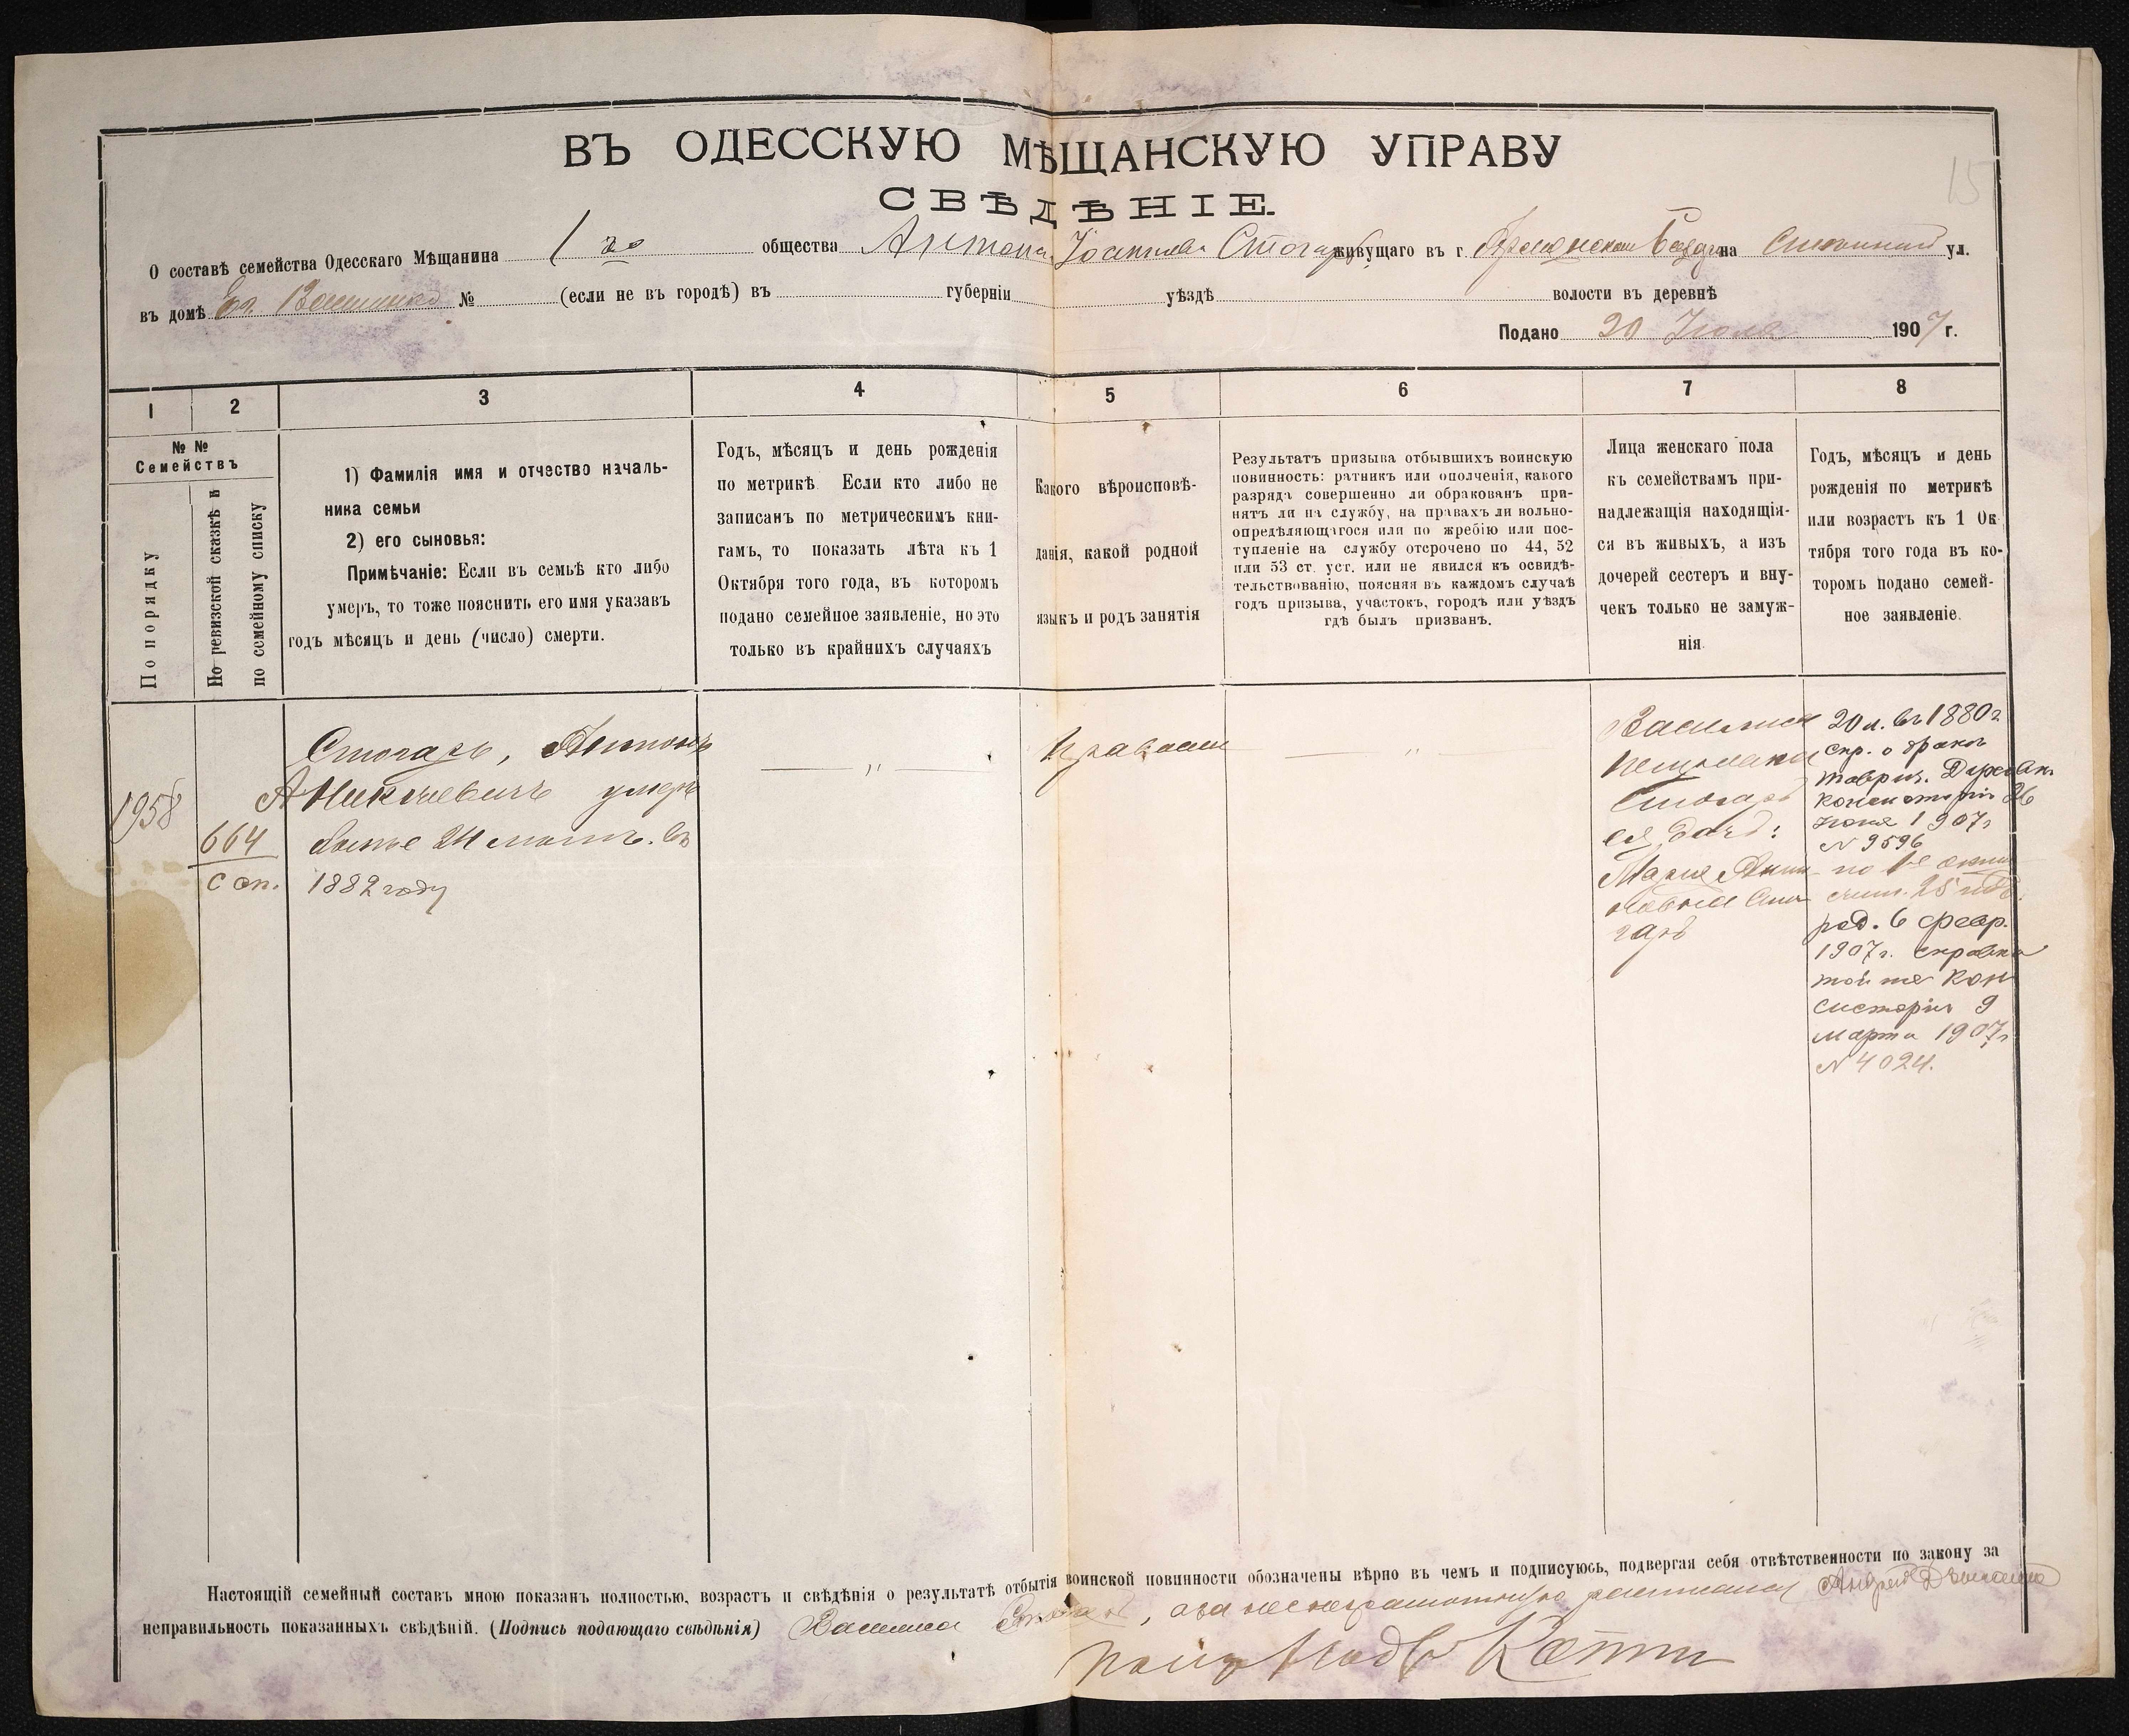 15
ВЪ ОДЕССКУЮ МѢЩАНСКУЮ УПРАВУ
СВѢДѢНІЕ.
О составѣ семейства Одесскаго Мѣщанина 1 го общества Антона живущаго въ г. на ул.
въ домѣ № (если не въ городѣ) въ губерніи уѣздѣ волости въ деревнѣ
Подано 20 Іюля 1907 г.
1 2 3 4 5 6 7 8
№ №
Семействъ
По порядку
По ревизской сказкѣ и
по семейному списку
1) Фамилія имя и отчество началь-
ника семьи
2) его сыновья:
Примѣчаніе: Если въ семьѣ кто либо
умеръ, то тоже пояснить его имя указавъ
годъ мѣсяцъ и день (число) смерти.
Годъ, мѣсяцъ и день рожденія
по метрикѣ. Если кто либо не
записанъ по метрическимъ кни-
гамъ, то показать лѣта къ 1
Октября того года, въ которомъ
подано семейное заявленіе, но это
только въ крайнихъ случаяхъ
Какого вѣроисповѣ-
данія, какой родной
языкъ и родъ занятія
Результатъ призыва отбывшихъ воинскую
повинность: ратникъ или ополченія, какого
разряда совершенно ли обракованъ при-
нятъ ли на службу, на правахъ ли вольно-
опредѣляющагося или по жребію или пос-
тупленіе на службу отсрочено по 44, 52
или 53 ст. уст. или не явился къ освидѣ-
тельствованію, поясняя въ каждомъ случаѣ
годъ призыва, участокъ, городъ или уѣздъ
гдѣ былъ призванъ.
Лица женскаго пола
къ семействамъ при-
надлежащія находящія-
ся въ живыхъ, а изъ
дочерей сестеръ и вну-
чекъ только не замуж-
нія.
Годъ, мѣсяцъ и день
рожденія по метрикѣ
или возрастъ къ 1 Ок-
тября того года въ ко-
торомъ подано семей-
ное заявленіе.
1958
664
С сп.
Стогаръ, Антонъ
умеръ
болѣе 24 въ
1882 году
— " —
Правосл
— " —
Стогаръ
ея дочь:
Марія Анто-
новна Сто-
гаръ
20 л. въ 1880 г
спр. о бракѣ
Таврич. Духовн.
консисторіи 26
1907 г
№ 9596
по
25
род. 6 февр.
1907 г. справка
той же Кон
систоріи 9
марта 1907 г
№ 4024.
Настоящій семейный составъ мною показанъ полностью, возрастъ и свѣдѣнія о результатѣ отбытія воинской повинности обозначены вѣрно въ чемъ и подписуюсь, подвергая себя отвѣтственности по закону за
неправильность показанныхъ свѣдѣній. (Подпись подающаго свѣдѣнія) а за нее неграмотную Андрей